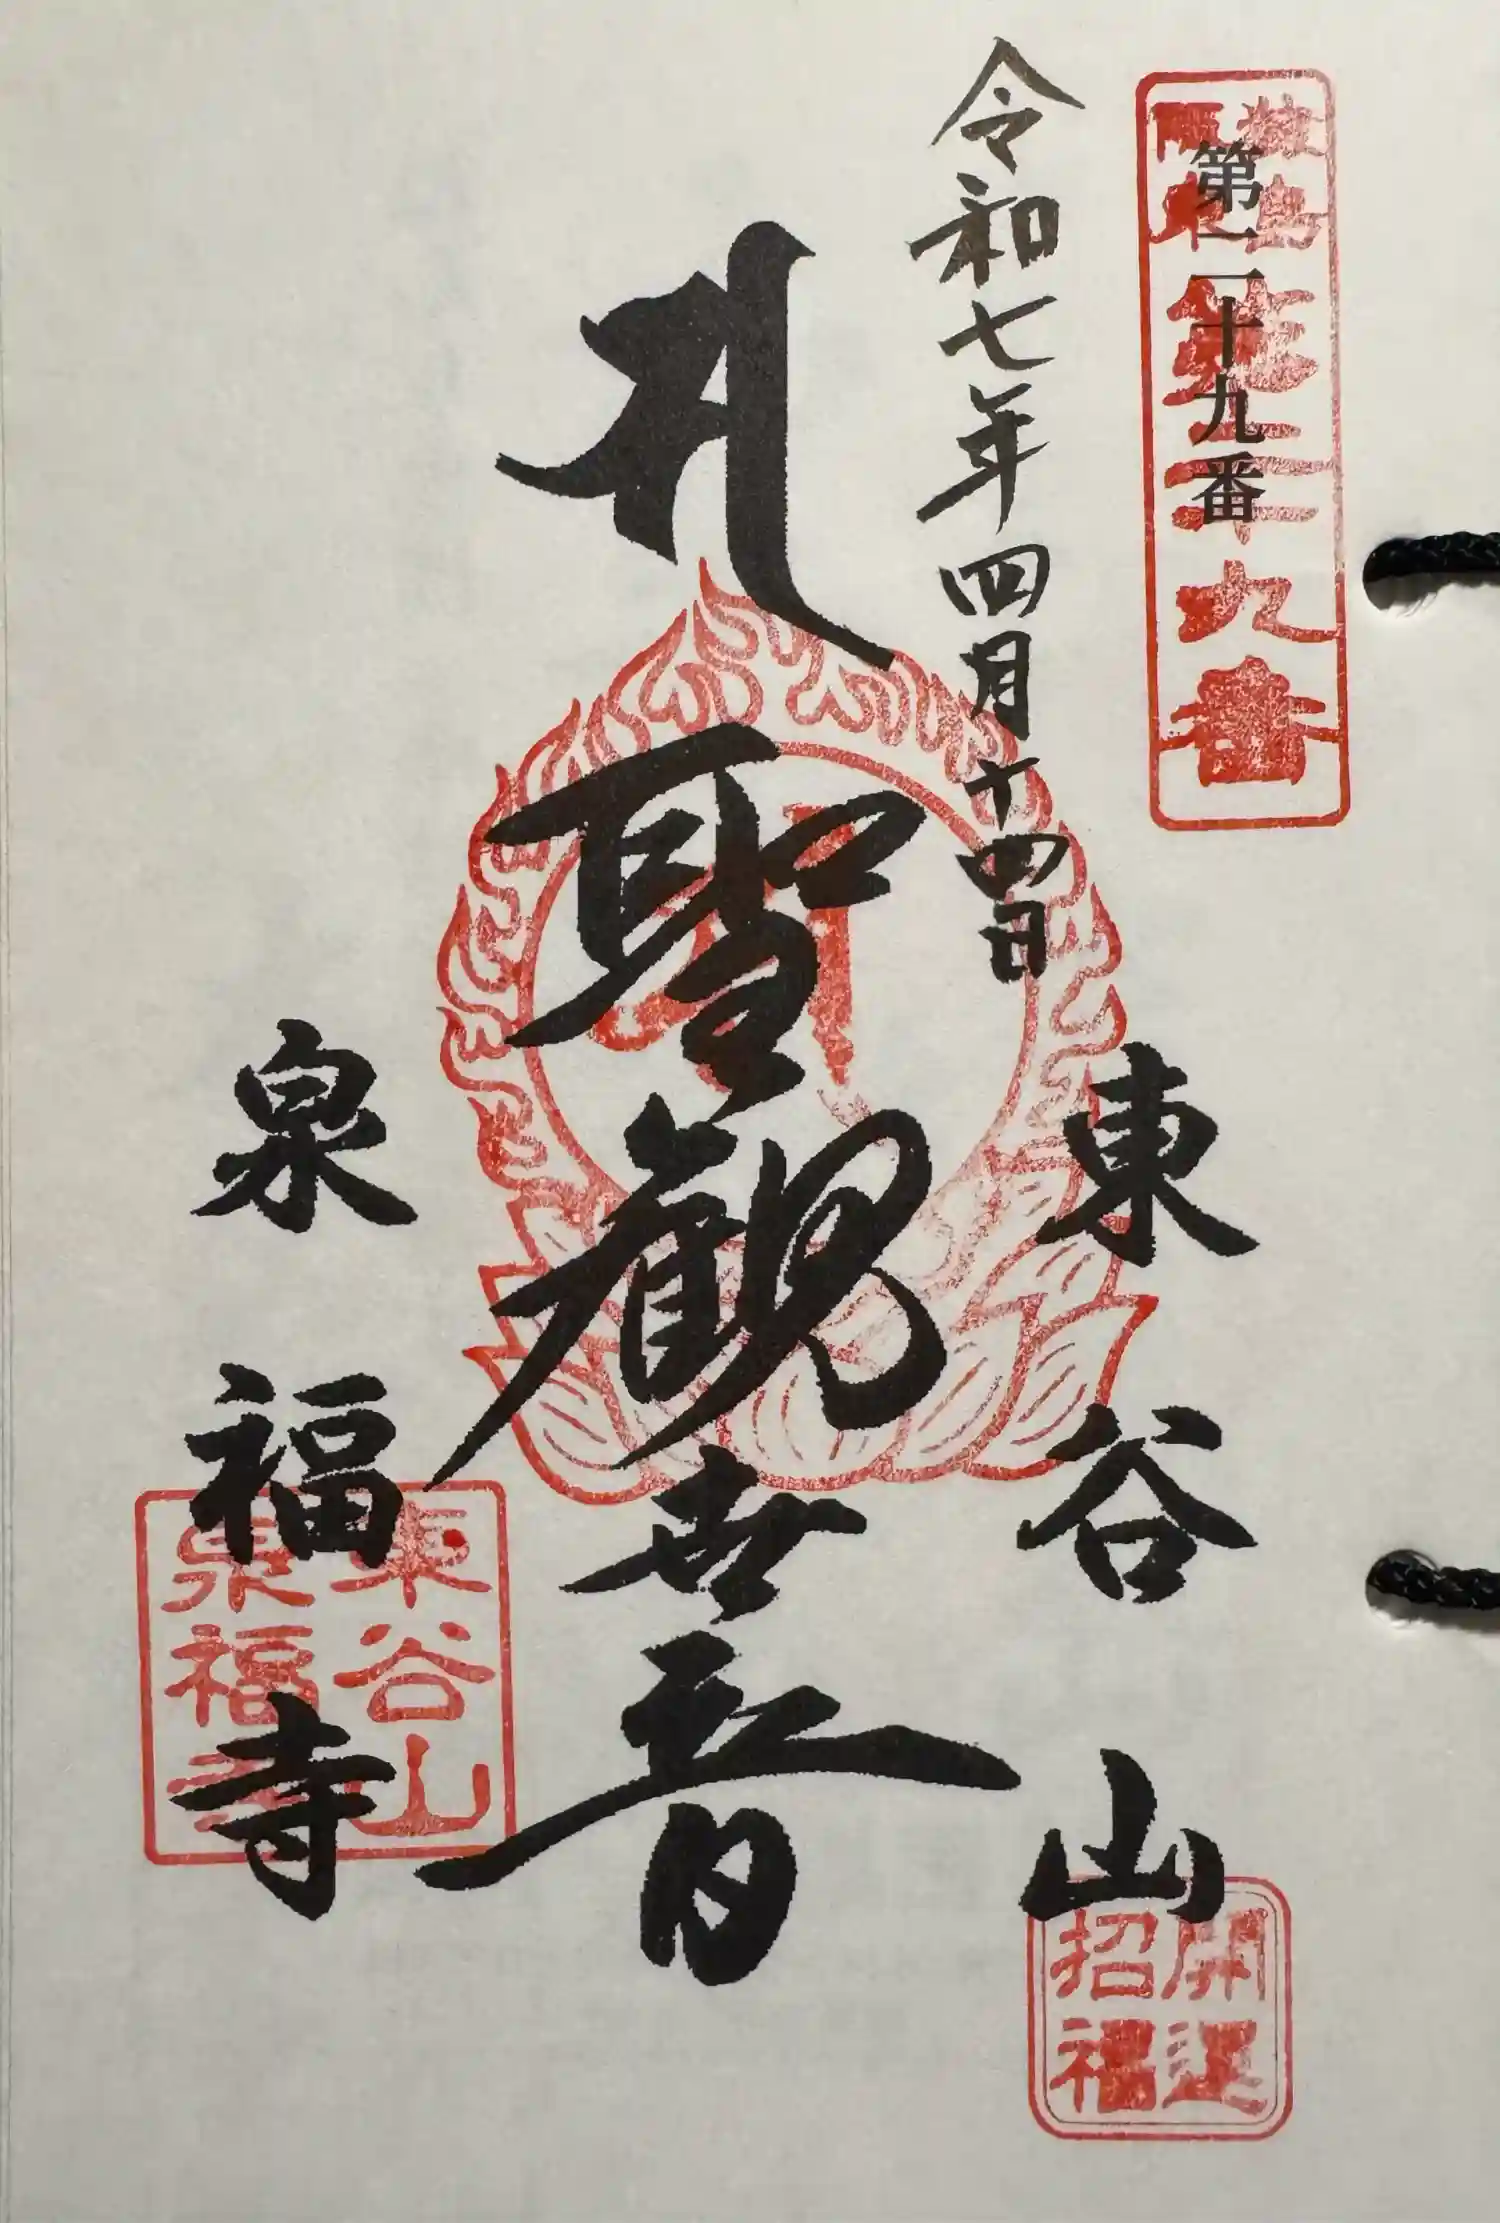 第二十九番
猿島
阪東
第二十九番
令和七年四月十四日
東谷山
開運
招福
聖観世音
泉福寺
東谷山
泉福寺